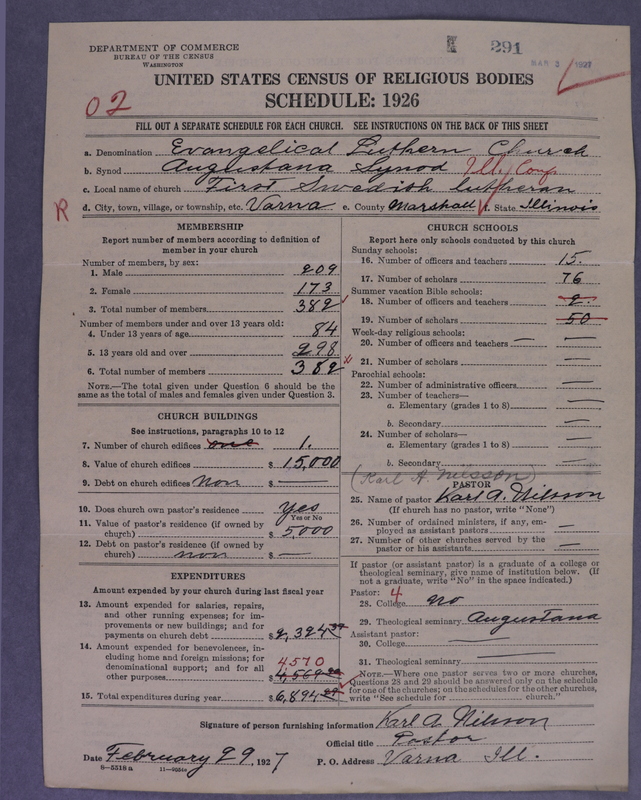 DEPARTMENT OF COMMERCE
BUREAU OF THE CENSUS
WASHINGTON
291
MAR 3 1927
UNITED STATES CENSUS OF RELIGIOUS BODIES
02
SCHEDULE: 1926
FILL OUT A SEPARATE SCHEDULE FOR EACH CHURCH. SEE INSTRUCTIONS ON THE BACK OF THIS SHEET
a. Denomination Evangelical Luthern Church
b. Synod Augustana Synod Ill. Conf
c. Local name of church First Swedish Lutheran
R d. City, town, village, or township, etc. Varna e. County Marshall f. State Illinois
MEMBERSHIP
Report number of members according to definition of member in your church
Number of members, by sex:
1. Male 209
2. Female 173
3. Total number of members 382
Number of members under and over 13 years old:
4. Under 13 years of age 84
5. 13 years old and over 298
6. Total number of members 382
NOTE.—The total given under Question 6 should be the same as the total of males and females given under Question 3.
CHURCH BUILDINGS
See instructions, paragraphs 10 to 12
7. Number of church edifices one 1.
8. Value of church edifices $ 15,000
9. Debt on church edifices Non $ —
10. Does church own pastor's residence Yes
Yes or No
11. Value of pastor's residence (if owned by church) $ 5,000
12. Debt on pastor's residence (if owned by church) non $ —
EXPENDITURES
Amount expended by your church during last fiscal year
13. Amount expended for salaries, repairs, and other running expenses; for improvements or new buildings; and for payments on church debt $ 2,324
14. Amount expended for benevolences, including home and foreign missions; for denominational support; and for all other purposes 4570 $ 4,569
15. Total expenditures during year $ 6,894
CHURCH SCHOOLS
Report here only schools conducted by this church
Sunday schools:
16. Number of officers and teachers 15.
17. Number of scholars 76
Summer vacation Bible schools:
18. Number of officers and teachers 2.
19. Number of scholars 50
Week-day religious schools:
20. Number of officers and teachers — —
21. Number of scholars —
Parochial schools:
22. Number of administrative officers —
23. Number of teachers—
a. Elementary (grades 1 to 8) —
b. Secondary —
24. Number of scholars—
a. Elementary (grades 1 to 8) —
b. Secondary —
(Karl A. Nilsson)
PASTOR
25. Name of pastor Karl A. Nilsson
(If church has no pastor, write "None")
26. Number of ordained ministers, if any, employed as assistant pastors —
27. Number of other churches served by the pastor or his assistants —
If pastor (or assistant pastor) is a graduate of a college or theological seminary, give name of institution below. (If not a graduate, write "No" in the space indicated.)
Pastor: 4
28. College no
29. Theological seminary Augustana
Assistant pastor:
30. College —
31. Theological seminary —
NOTE.—Where one pastor serves two or more churches, Questions 28 and 29 should be answered only on the schedule for one of the churches; on the schedules for the other churches, write "See schedule for ______ church."
Signature of person furnishing information Karl A. Nilsson
Official title Pastor
Date February 29, 1927
P. O. Address Varna Ill.
8—5518 a